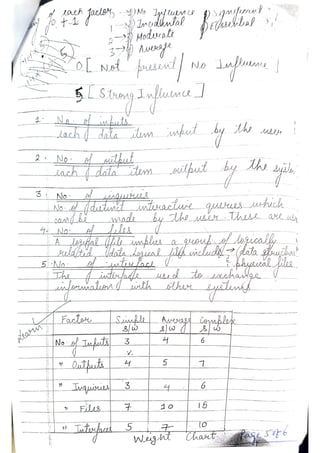 of each factor → 0) No Influence 4) Significant
0 to 5 1 → Incidental 5) Essential
2 → Moderate
3 → Average
0 [ Not present / No Influence ]
5 [ Strong Influence ]
1. No. of inputs
each data item input by the user
2. No. of output
each data item output by the system
3. No. of enquiries
No. of distinct interactive queries which
can be made by the user. These are
4. No. of files
A logical file implies a group of logically
related data. Logical files include → data structures
& physical files
5. No. of interface
The interface used to exchange
information with other systems
Learn
Factor Simple Average Complex
S/W S/W S/W
No of Inputs 3 4 6
" Outputs 4 5 7
" Inquiries 3 4 6
" Files 7 10 15
" Interfaces 5 7 10
Weight Chart Page 5 of 6